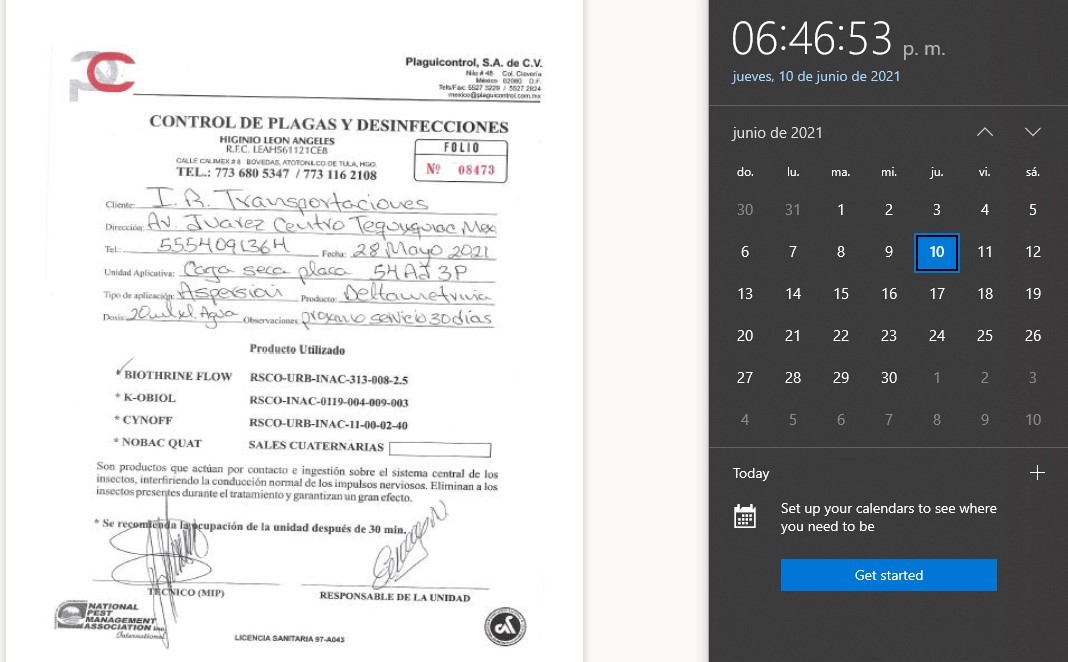 Plaguicontrol, S.A. de C.V.
Nilo # 48 Col. Clavería
México 02080 D.F.
Tels/Fax: 5527 3229 / 5527 2824
mexico@plaguicontrol.com.mx
CONTROL DE PLAGAS Y DESINFECCIONES
HIGINIO LEON ANGELES
R.F.C. LEAH561121CE8
CALLE CALIMEX # 8 BOVEDAS, ATOTONILCO DE TULA, HGO.
TEL.: 773 680 5347 / 773 116 2108
FOLIO
Nº 08473
Cliente: I.R. Transportaciones
Dirección: Av. Juarez Centro Tequixquiac Mex
Tel.: 5554091364 Fecha: 28 Mayo 2021
Unidad Aplicativa: Caja seca placa 54AJ3P
Tipo de aplicación: Aspersión Producto: Deltametrina
Dosis: 20ml x l Agua Observaciones: proximo servicio 30 días
Producto Utilizado
BIOTHRINE FLOW RSCO-URB-INAC-313-008-2.5
* K-OBIOL RSCO-INAC-0119-004-009-003
* CYNOFF RSCO-URB-INAC-11-00-02-40
* NOBAC QUAT SALES CUATERNARIAS
Son productos que actúan por contacto e ingestión sobre el sistema central de los
insectos, interfiriendo la conducción normal de los impulsos nerviosos. Eliminan a los
insectos presentes durante el tratamiento y garantizan un gran efecto.
* Se recomienda la ocupación de la unidad después de 30 min.
TÉCNICO (MIP)
RESPONSABLE DE LA UNIDAD
NATIONAL
PEST
MANAGEMENT
ASSOCIATION Inc.
International
LICENCIA SANITARIA 97-A043
06:46:53 p. m.
jueves, 10 de junio de 2021
junio de 2021
do. lu. ma. mi. ju. vi. sá.
30 31 1 2 3 4 5
6 7 8 9 10 11 12
13 14 15 16 17 18 19
20 21 22 23 24 25 26
27 28 29 30 1 2 3
4 5 6 7 8 9 10
Today
Set up your calendars to see where
you need to be
Get started